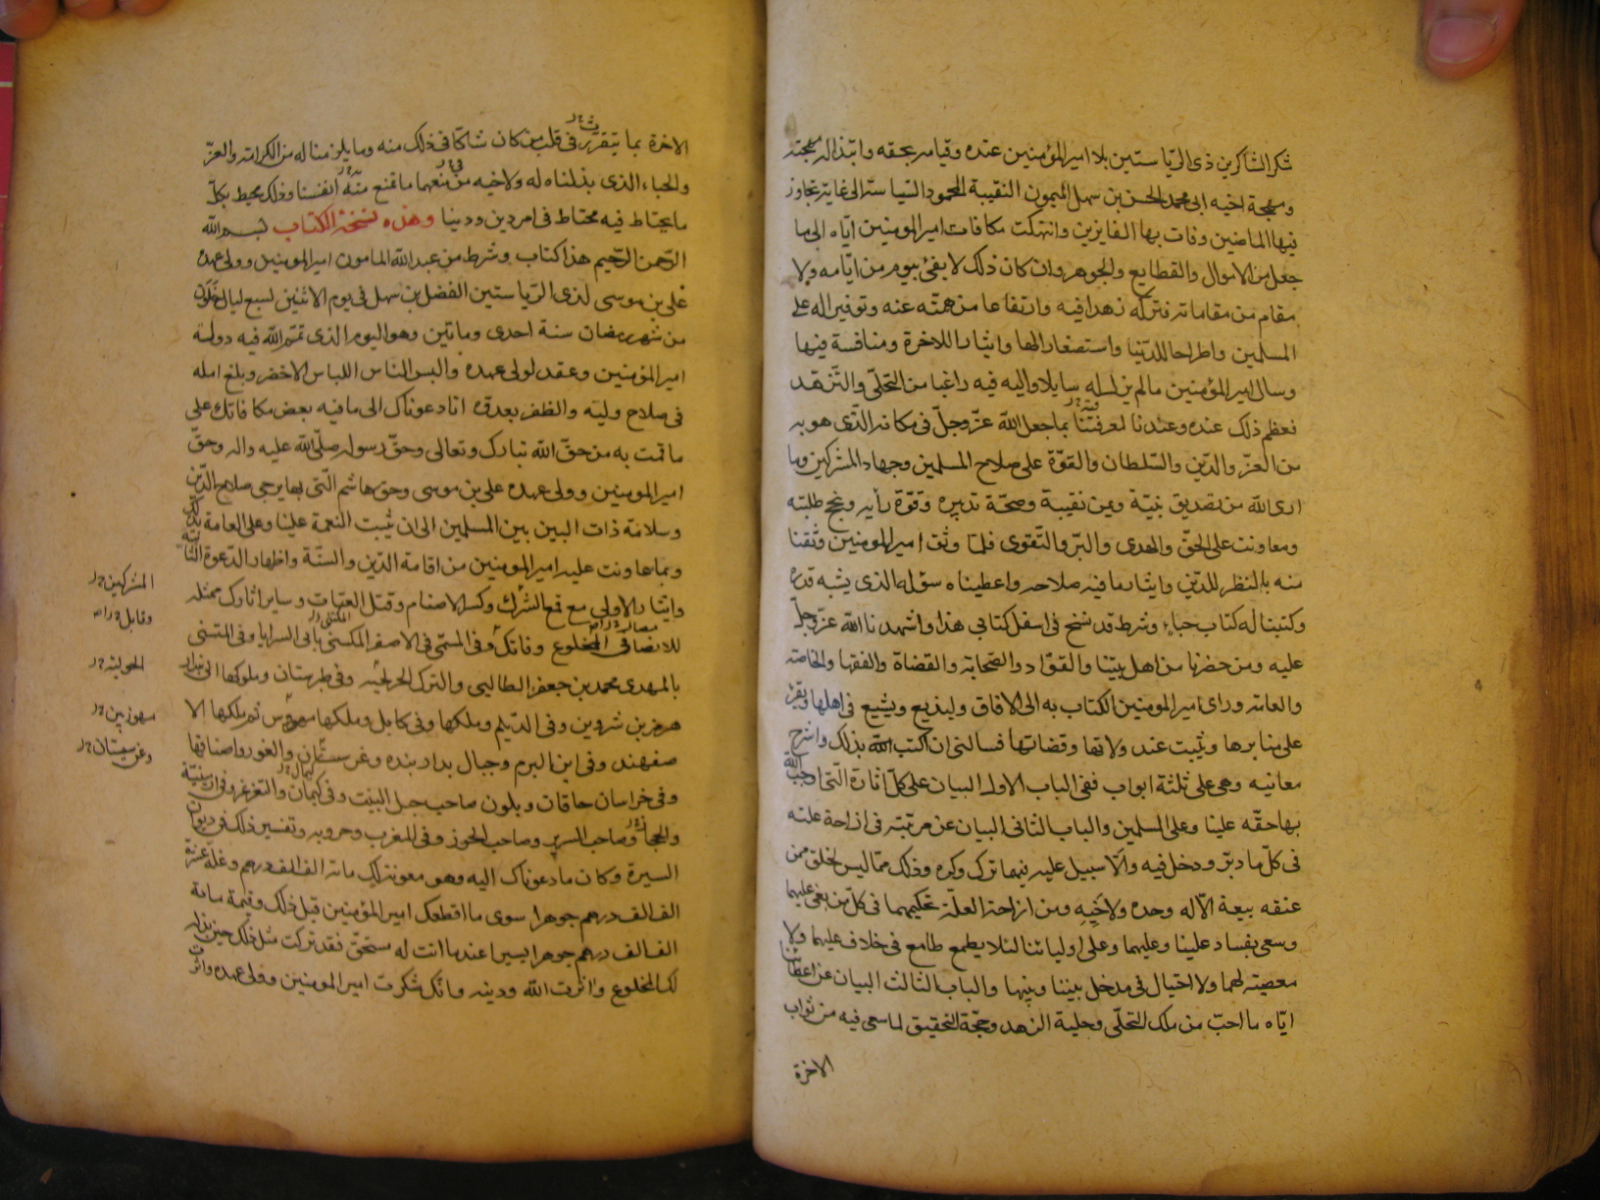 شكر الشاكرين ذى الرّياستين بلاء اميرالمؤمنين عنده وقيامه بحقه وابتذاله مهجته
ومهجة اخيه ابى محمد الحسن بن سهل الميمون النقيبة المحمود السياسة الى غاية تجاوز
فيها الماضين وفات بها الفايزين وانتهكت مكافات اميرالمومنين اياه الى ما
جعل من الاموال والقطايع والجوهر وان كان ذلك لا يفئ بيوم من ايّامه ولا
مقام من مقاماته فتركه زهدا فيه وارتفاعا من همّته عنه وتوفيرا له على
المسلمين واطراحا للدّنيا واستصغارا لها وايثارا للاخرة ومنافسة فيها
وسال اميرالمؤمنين مالم يزل له سايلا واليه فيه راغبا من التخلّى والتّزهّد
فعظم ذلك عنده وعندنا لمعرفتنا بما جعل الله عزّ وجلّ فى مكانه الّذى هو به
من العزّ والدّين والسّلطان والقوّة على صلاح المسلمين وجهاد المشركين وما
ارى الله من تصديق نيّته ويمن نقيبة وصحّة تدبيره وقوّة رأيه ونجح طلبته
ومعاونته على الحقّ والهدى والبرّ والتّقوى فلمّا وثق اميرالمومنين وثقنا
منه بالنظر للدّين وايثار ما فيه صلاحه واعطيناه سؤله الذى يشبه قدره
وكتبنا له كتاب حباء وشرط قد نسخ فى اسفل كتابى هذا واشهدنا الله عزّ وجلّ
عليه ومن حضرنا من اهل بيتنا والقوّاد والصّحابة والقضاة والفقها والخاصّة
والعامّة وراى اميرالمومنين الكتاب به الى الافاق وليذيع ويشيع فى اهلها ويقرء
على منابرها ويثبت عند ولاتها وقضاتها فسالنى ان اكتب بذلك واشرح
معانيه وهى على ثلثة ابواب ففى الباب الاول البيان على كلّ اثاره الّتى اوجب الله
بها حقّه علينا وعلى المسلمين والباب الثانى البيان عن مرتبته فى ازاحة علّته
فى كلّ ما دبّر ودخل فيه والّا سبيل عليه فيما ترك وكره وذلك ممّا ليس لخلق ممن
عنقه بيعة الّا له وحده ولاخيه ومن ازاحة العلّة تحكيمهما فى كلّ من بغى عليهما
وسعى بفساد علينا وعليهما وعلى اوليائنا لئلا يطمع طامع فى خلاف عليهما ولا
معصية لهما ولا احتيال فى مدخل بيننا وبينهما والباب الثالث البيان عن اعطائنا
ايّاه ما احبّ من ملك التخلّى وحلية الزهد وحجّة التحقيق لما سعى فيه من ثواب
الاخرة
الاخرة بما يتقرّر فى قلب من كان شاكّا فى ذلك منه وما يلزمنا له من الكرامة والعزّ
والحباء الذى بذلناه له ولاخيه من منعهما ما نمنع منه انفسنا وذلك محيط بكلّ
ما يحتاط فيه محتاط فى امر دين ودنيا وهذه نسخة الكتاب بسم الله
الرّحمن الرّحيم هذا كتاب وشرط من عبد الله المامون اميرالمومنين وولى عهده
على بن موسى لذى الرّياستين الفضل بن سهل فى يوم الاثنين لسبع ليال خلون
من شهر رمضان سنة احدى وماتين وهو اليوم الذى تمّم الله فيه دولة
اميرالمؤمنين وعقد لولى عهده والبس الناس اللباس الاخضر وبلغ امله
فى صلاح وليّه والظفر بعدوّه انا دعوناك الى ما فيه بعض مكافاتك على
ما قمت به من حقّ الله تبارك وتعالى وحقّ رسوله صلّى الله عليه واله وحقّ
اميرالمومنين وولى عهده على بن موسى وحق هاشم الّتى بها يرجى صلاح الدّين
وسلامة ذات البين بين المسلمين الى ان ثبت النعمة علينا وعلى العامة بذلك
وبما عاونت عليه اميرالمومنين من اقامة الدّين والسنّة واظهار الدّعوة الثانية
وايثار الاولى مع قمع الشّرك وكسر الاصنام وقتل العتاة وساير اثارك ممثلة
للامصار فى المخلوع وفى المسمّى فى الاصفر المكنى بابى السرايا وفى المتسمى
بالمهدى محمد بن جعفر الطالبى والترك الخزلجيّة وفى طبرستان وملوكها الى بندار
هرمز بن شروين وفى الدّيلم وملكها وفى كابل وملكها ثم ملكها الا
صفهبد وفى ابن البرم وجبال بداربنده وغرستان والغور واصنافها
وفى خراسان خاقان وبلون صاحب جبل التبت وفى كيمان والتغزغز وفى ارمنيّة
والحجاز وصاحب السرير وصاحب الخوز وفى المغرب وحروبه وتفسير ذلك فى ديوان
السيرة وكان ما دعوناك اليه وهو معونة لك مائة الف الف درهم وغلة عشرة
الف الف درهم جوهرا سوى ما اقطعك اميرالمؤمنين قبل ذلك وقيمة مائة
الف الف درهم جوهرا يسيرا عندما انت له مستحقّ فقد تركت مثل ذلك حين بذله
لك المخلوع واثرت الله ودينه وانك شكرت اميرالمومنين وولى عهده واثرت
المشركين
وقابل
الخولية
وغرسستان